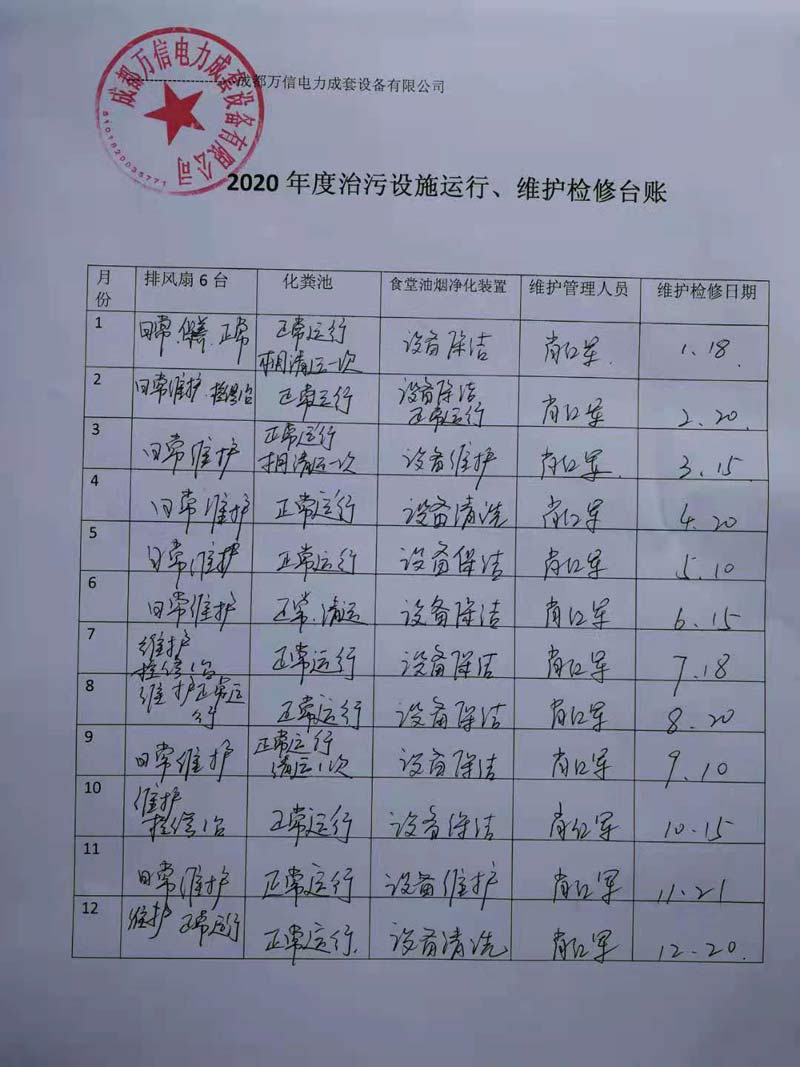 成都万信电力成套设备有限公司
成都万信电力成套设备有限公司
5101820035771
2020 年度治污设施运行、维护检修台账
月份 排风扇 6 台 化粪池 食堂油烟净化装置 维护管理人员 维护检修日期
1 日常 正常 正常运行 清运一次 设备保洁 肖红军 1.18
2 日常维护 正常运行 设备保洁 正常运行 肖红军 2.20
3 日常维护 正常运行 清运一次 设备维护 肖红军 3.15
4 日常维护 正常运行 设备清洗 肖红军 4.20
5 日常维护 正常运行 设备保洁 肖红军 5.10
6 日常维护 正常.清运 设备保洁 肖红军 6.15
7 维护 检修1台 正常运行 设备保洁 肖红军 7.18
8 维护正常运行 正常运行 设备保洁 肖红军 8.20
9 日常维护 正常运行 清运1次 设备保洁 肖红军 9.10
10 维护 检修1台 正常运行 设备保洁 肖红军 10.15
11 日常维护 正常运行 设备维护 肖红军 11.21
12 维护 正常运行 正常运行. 设备清洗 肖红军 12.20.